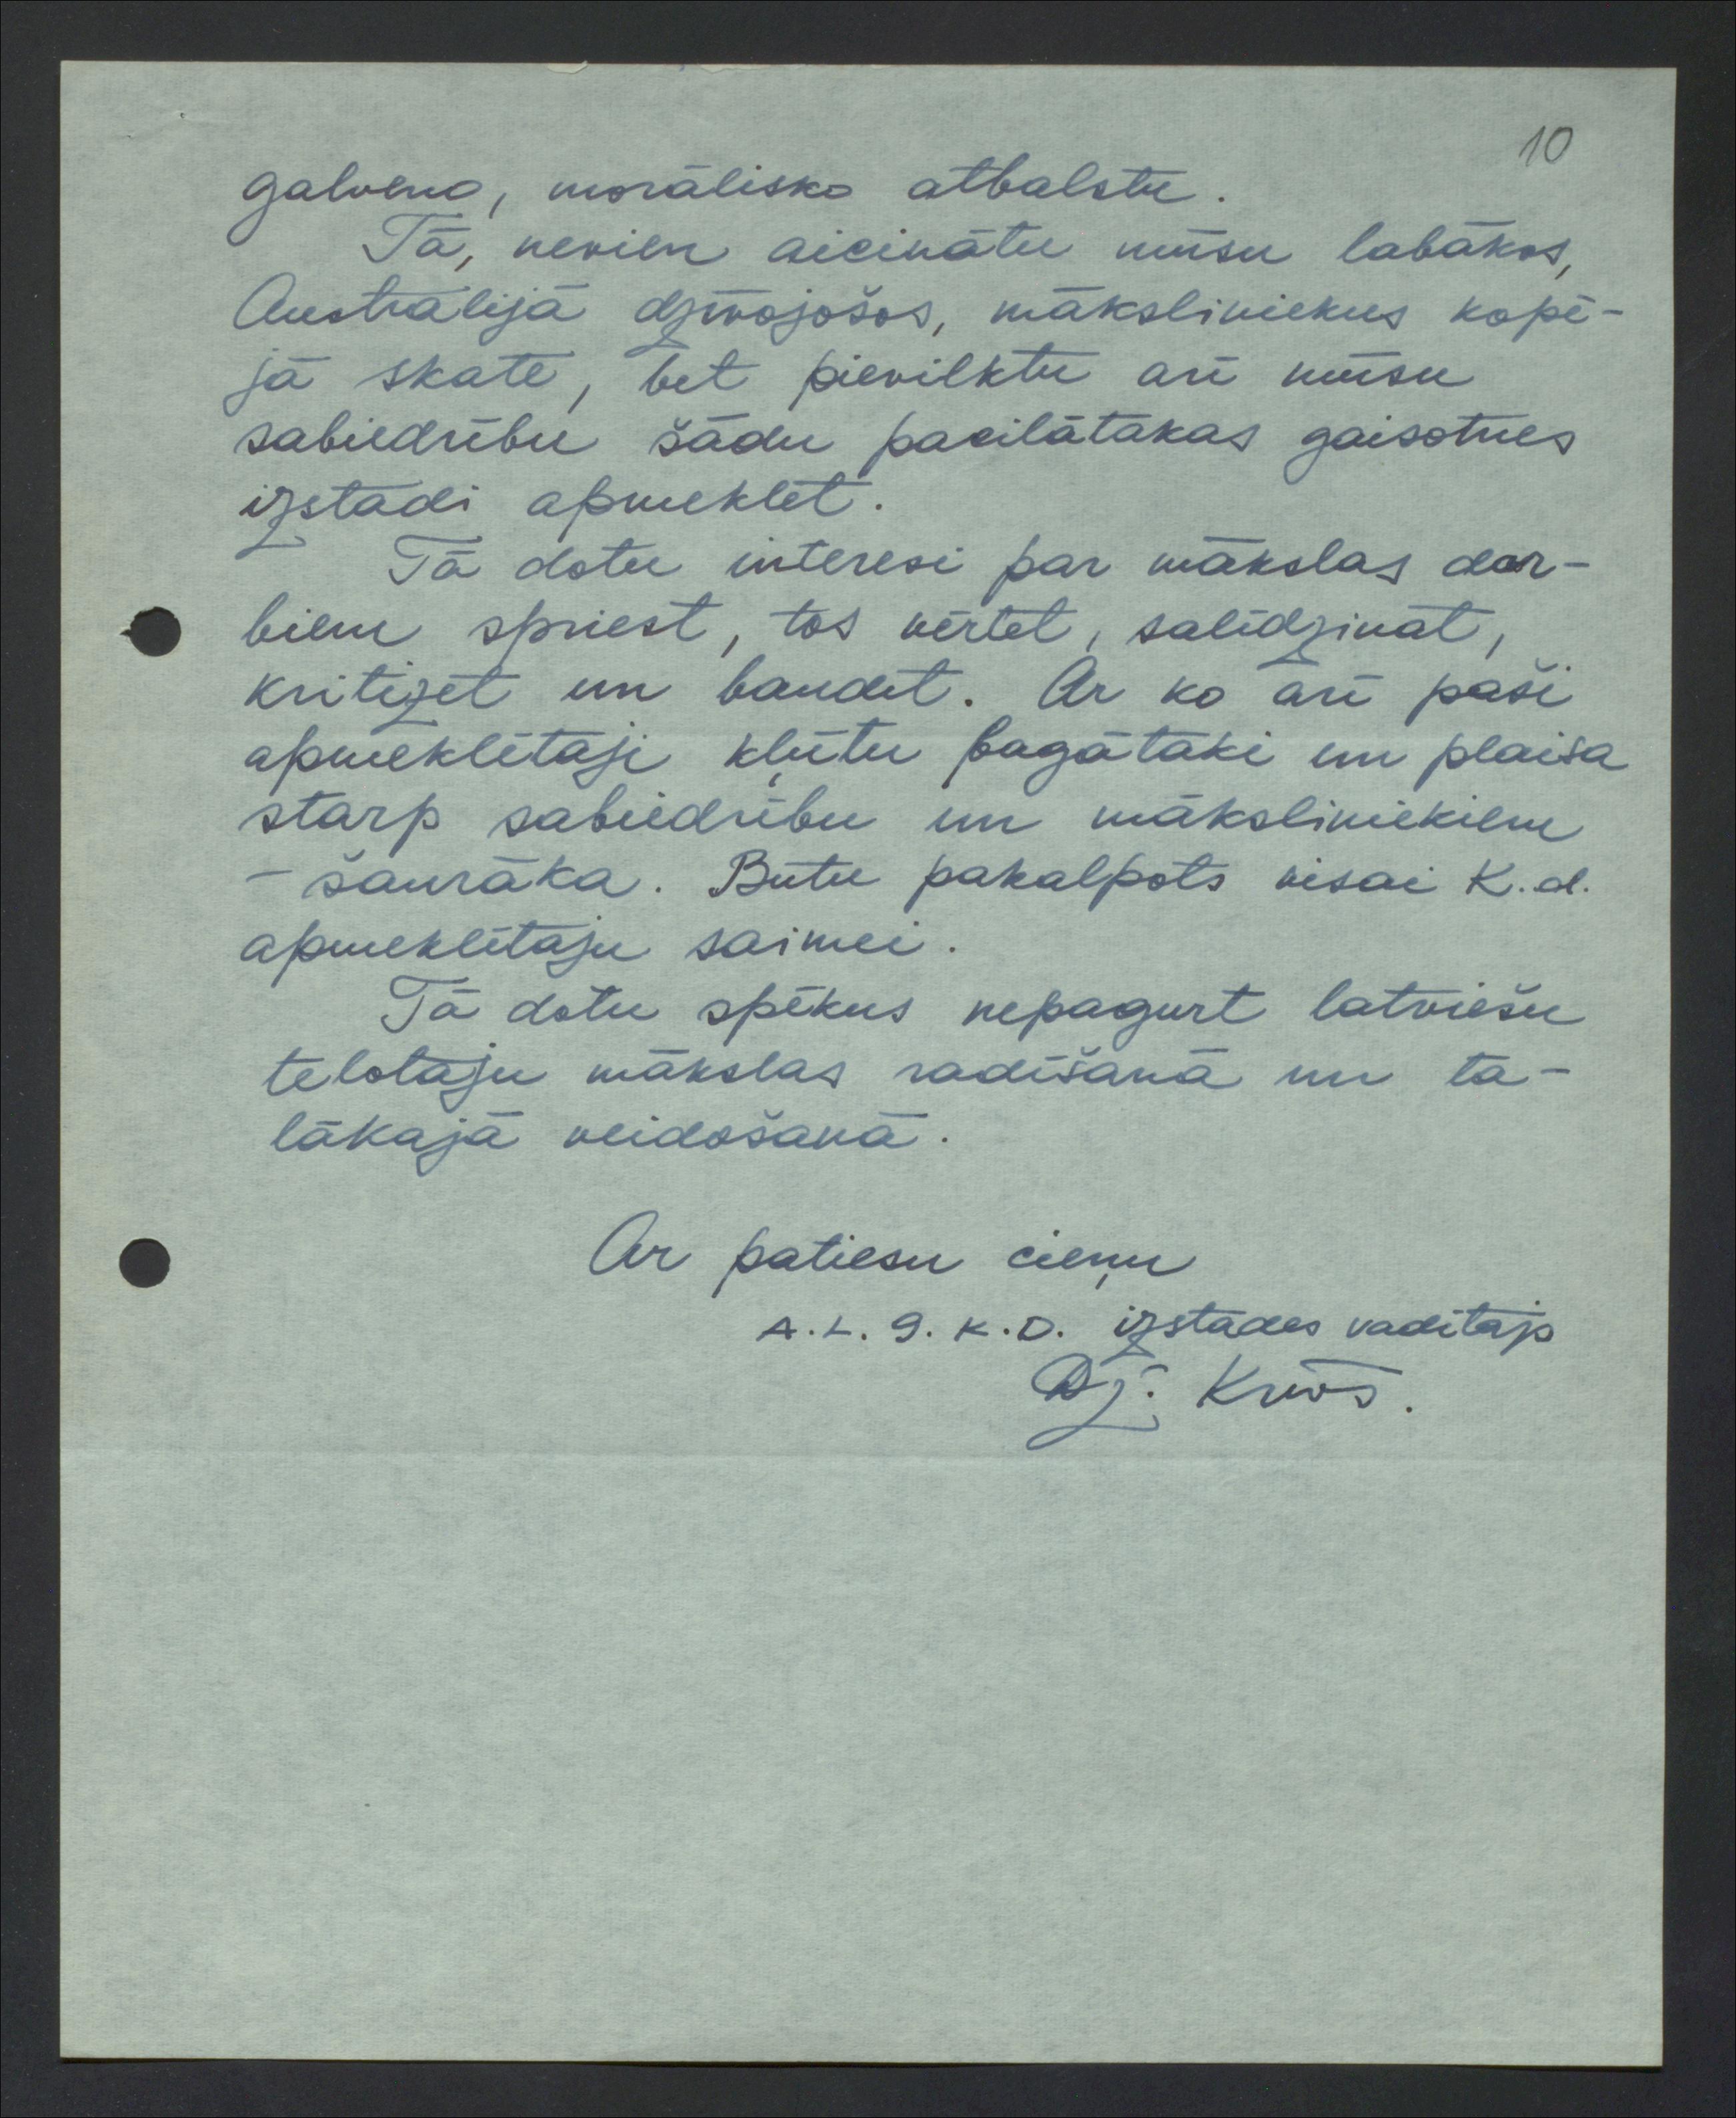 10
galveno, morālisko atbalstu.
Tā, nevien aicinātu mūsu labākos,
Austrālijā dzīvojošos, māksliniekus kopē-
jā skatē, bet pievilktu arī mūsu
sabiedrību šādu pacilātākas gaisotnes
izstādi apmeklēt.
Tā dotu interesi par mākslas dar-
biem spriest, tos vērtēt, salīdzināt,
kritizēt un baudīt. Ar ko arī paši
apmeklētāji kļūtu bagātāki un plaisa
starp sabiedrību un māksliniekiem
- šaurāka. Būtu pakalpots visai K.d.
apmeklētāju saimei.
Tā dotu spēkus nepagurt latviešu
tēlotāju mākslas radīšanā un tā-
lākajā veidošanā.
Ar patiesu cieņu
A.L. 9. K.D. izstādes vadītājs
Dz. Krīvs.